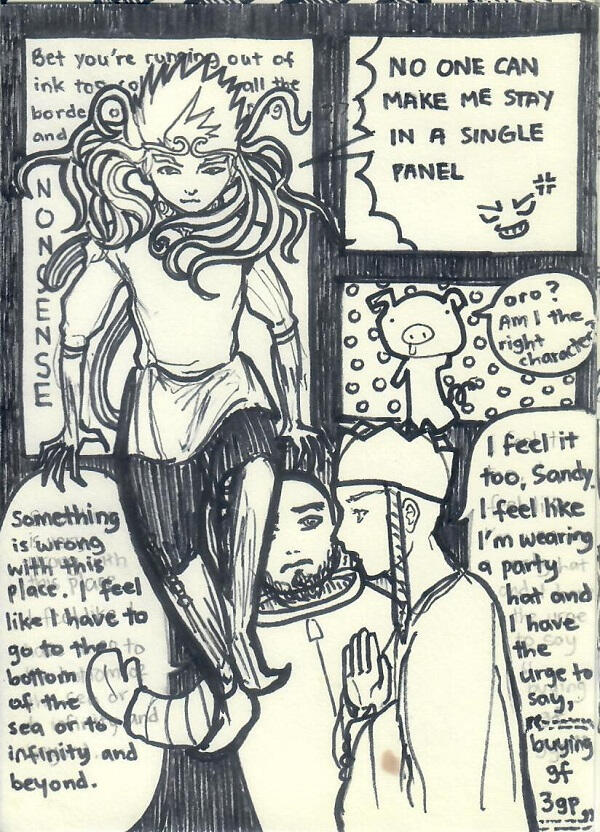 Bet you're running out of
ink to all the
borde
and
NONSENSE
NO ONE CAN
MAKE ME STAY
IN A SINGLE
PANEL
oro?
Am I the
right
character?
I feel it
too, Sandy.
I feel like
I'm wearing
a party
hat and
I have
the
urge to
say,
buying
gf
3gp
Something
is wrong
with this
place. I feel
like I have to
go to the
bottom
of the
sea or to
infinity and
beyond.